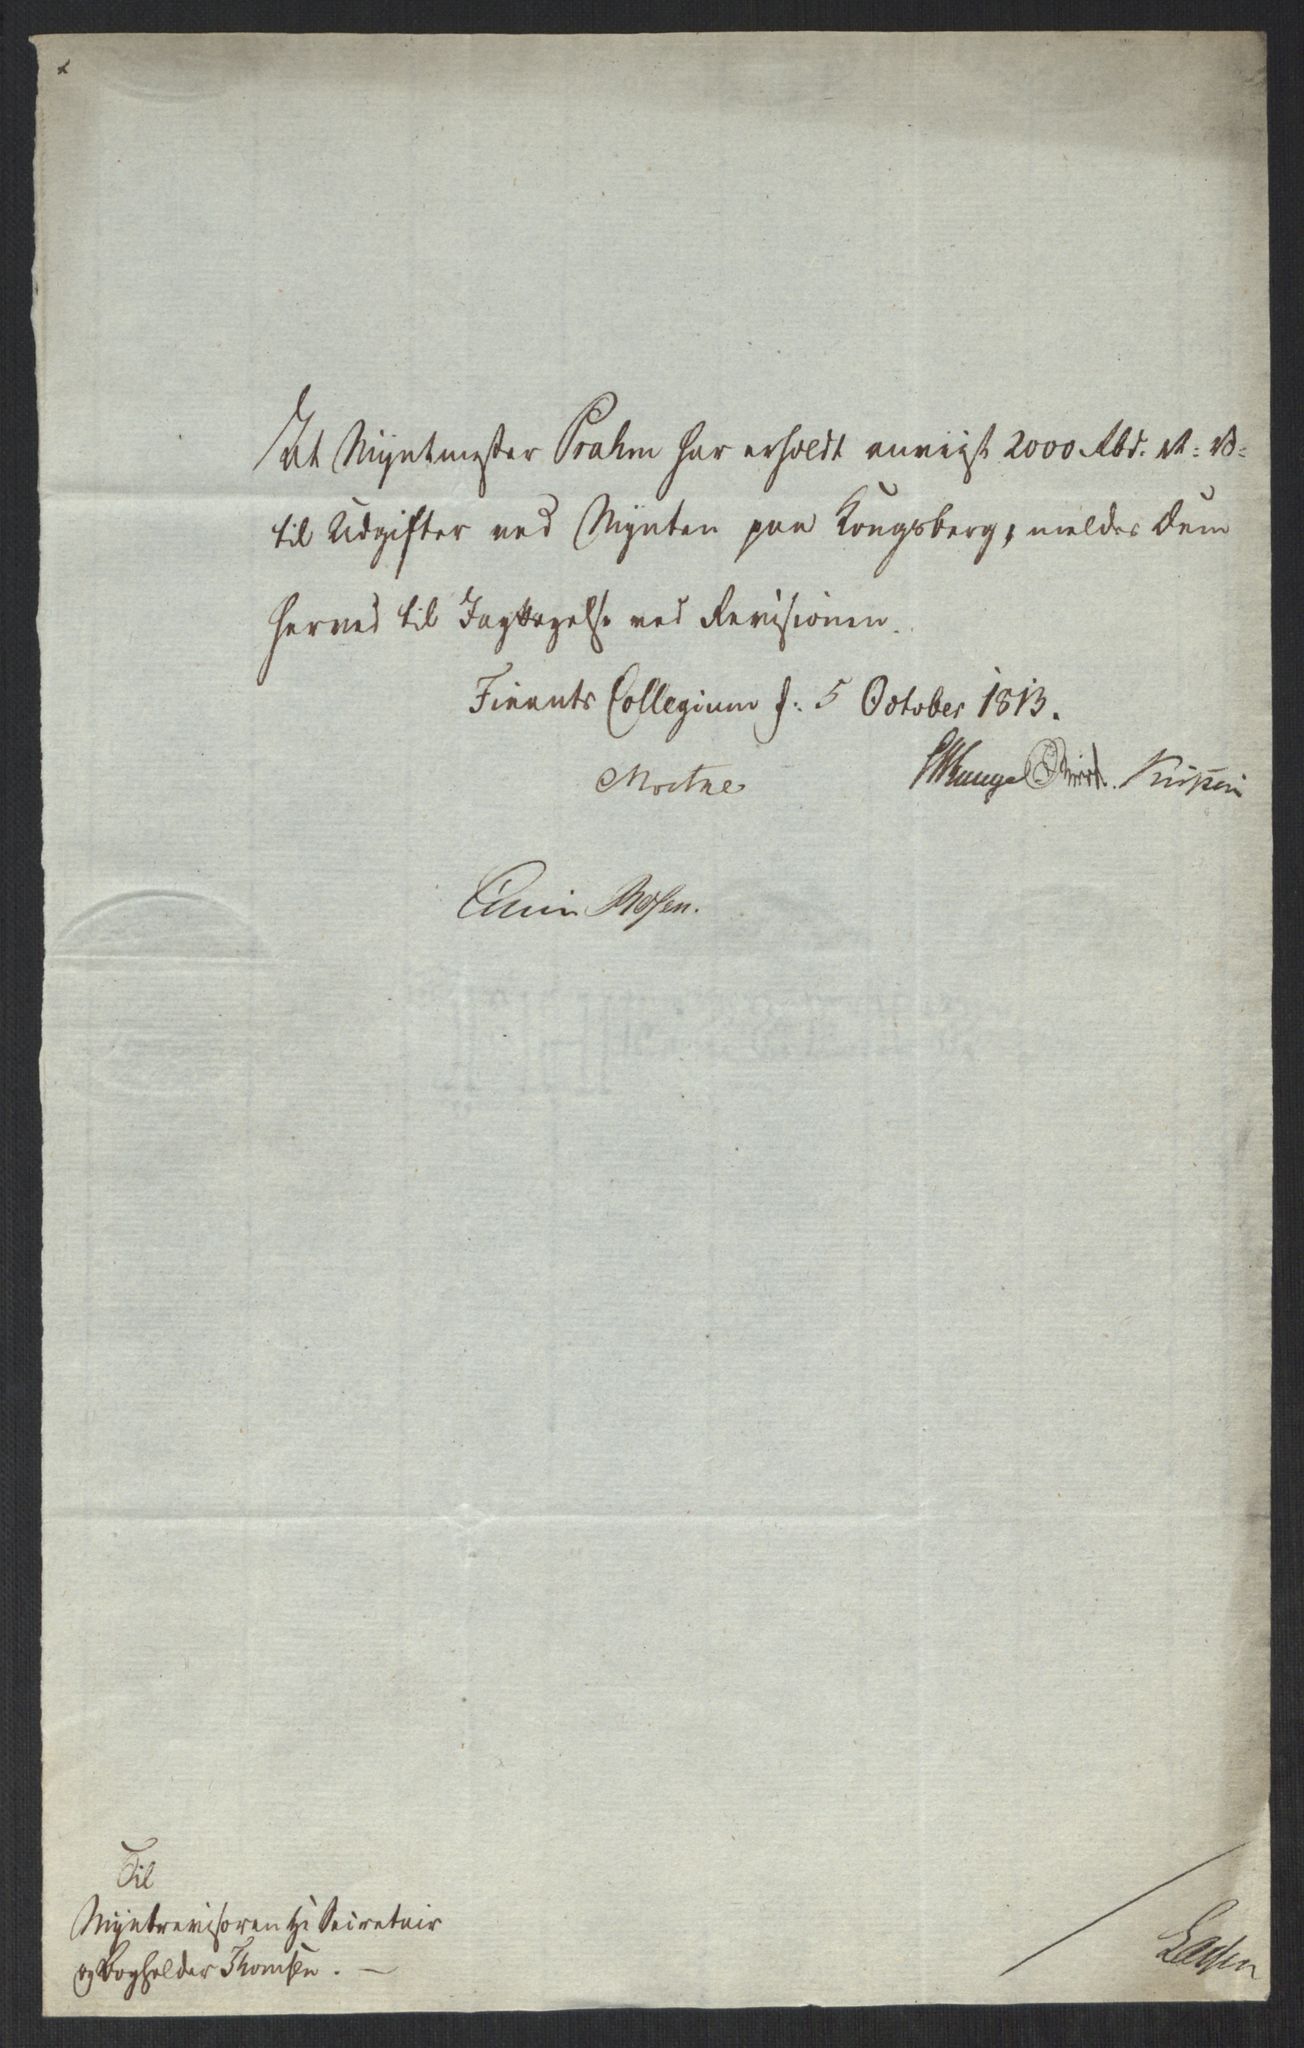 At Myntmester Prahm har erholdt anvigst 2000 Rbd. N: V:
til Udgifter ved Mynten paa Kongsberg, meldes Dem
herved til Jagttagelse ved Revisionen.
Finants Collegium d: 5 October 1813.
Moltke
Til
Myntrevisoren Hr Secretair
og Bogholder Thomsen.
Lassen